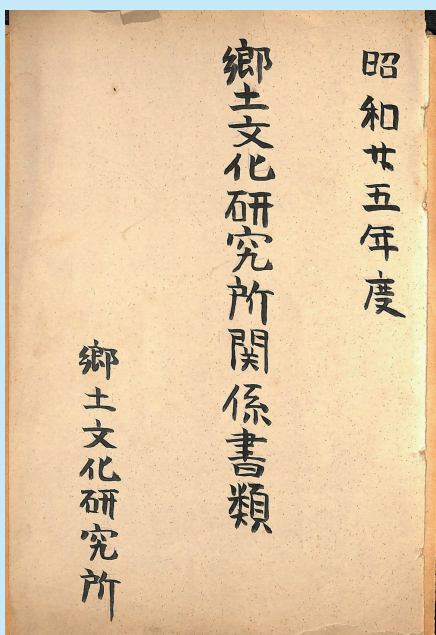 昭和廿五年度
郷土文化研究所関係書類
郷土文化研究所